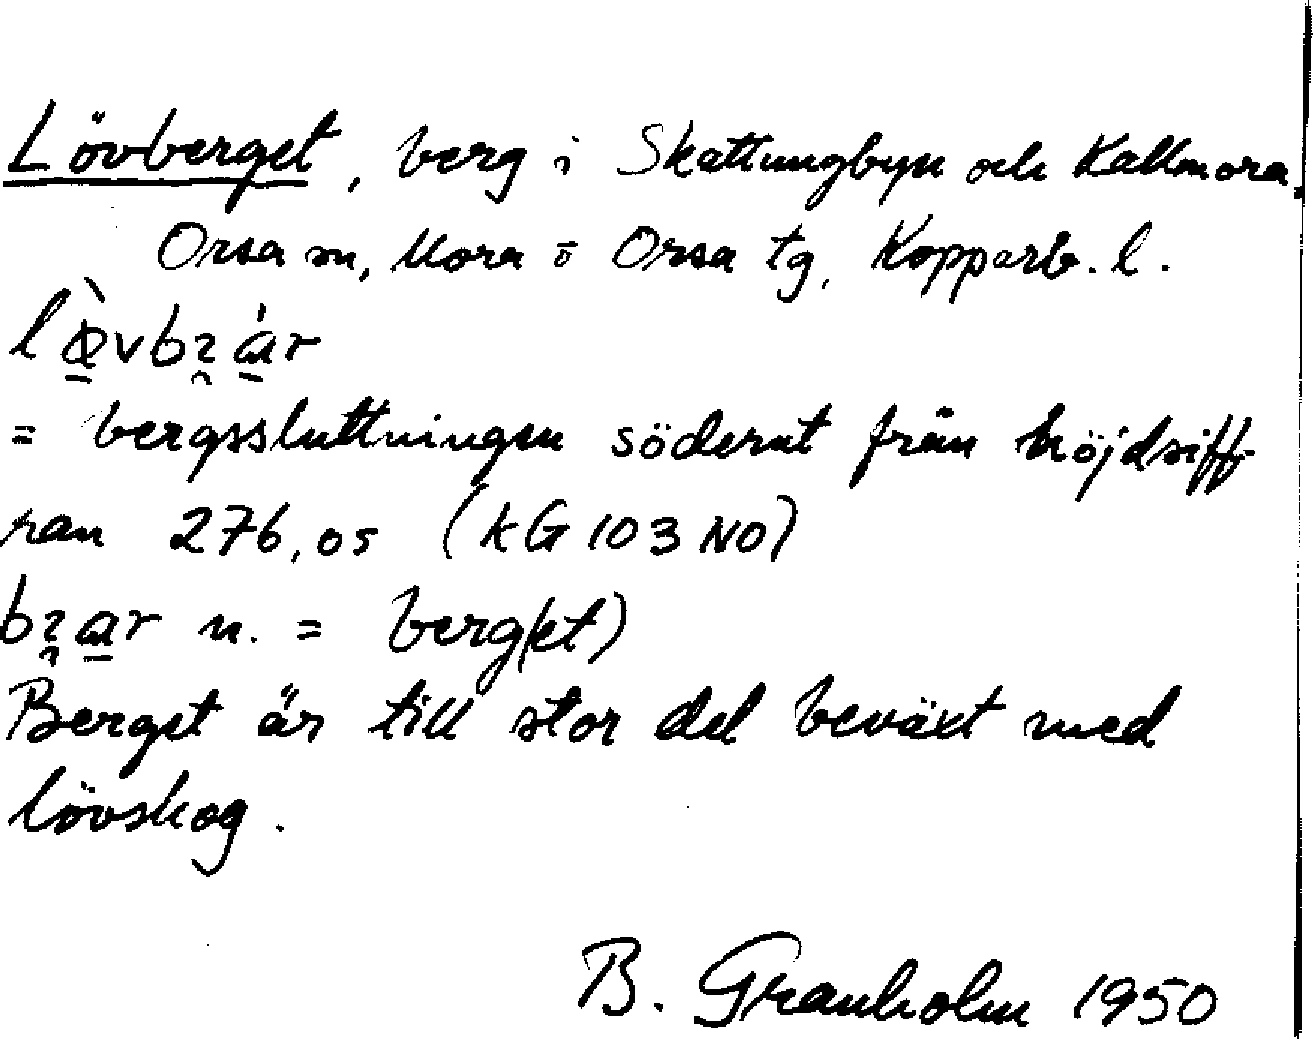 Lövberget, berg i Skattungbyn och Kallmora,
Orsa sn, Mora o Orsa tg, Kopparb. l.
= bergssluttningen söderut från höjdsiff-
ran 276,05 (KG 103 NO)
n. = berg(et)
Berget är till stor del beväxt med
lövskog.
B. Granholm 1950